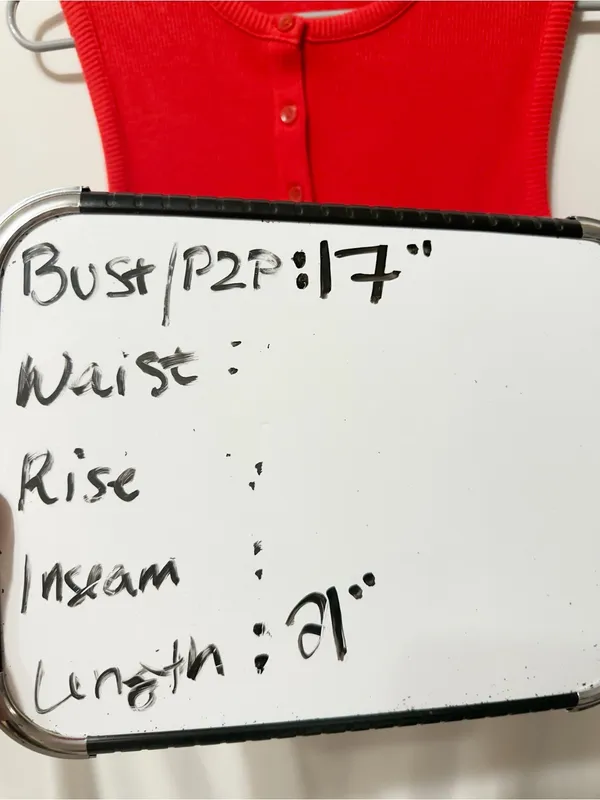 Bust/P2P:17"
Waist :
Rise :
Inseam :
Length : 21"